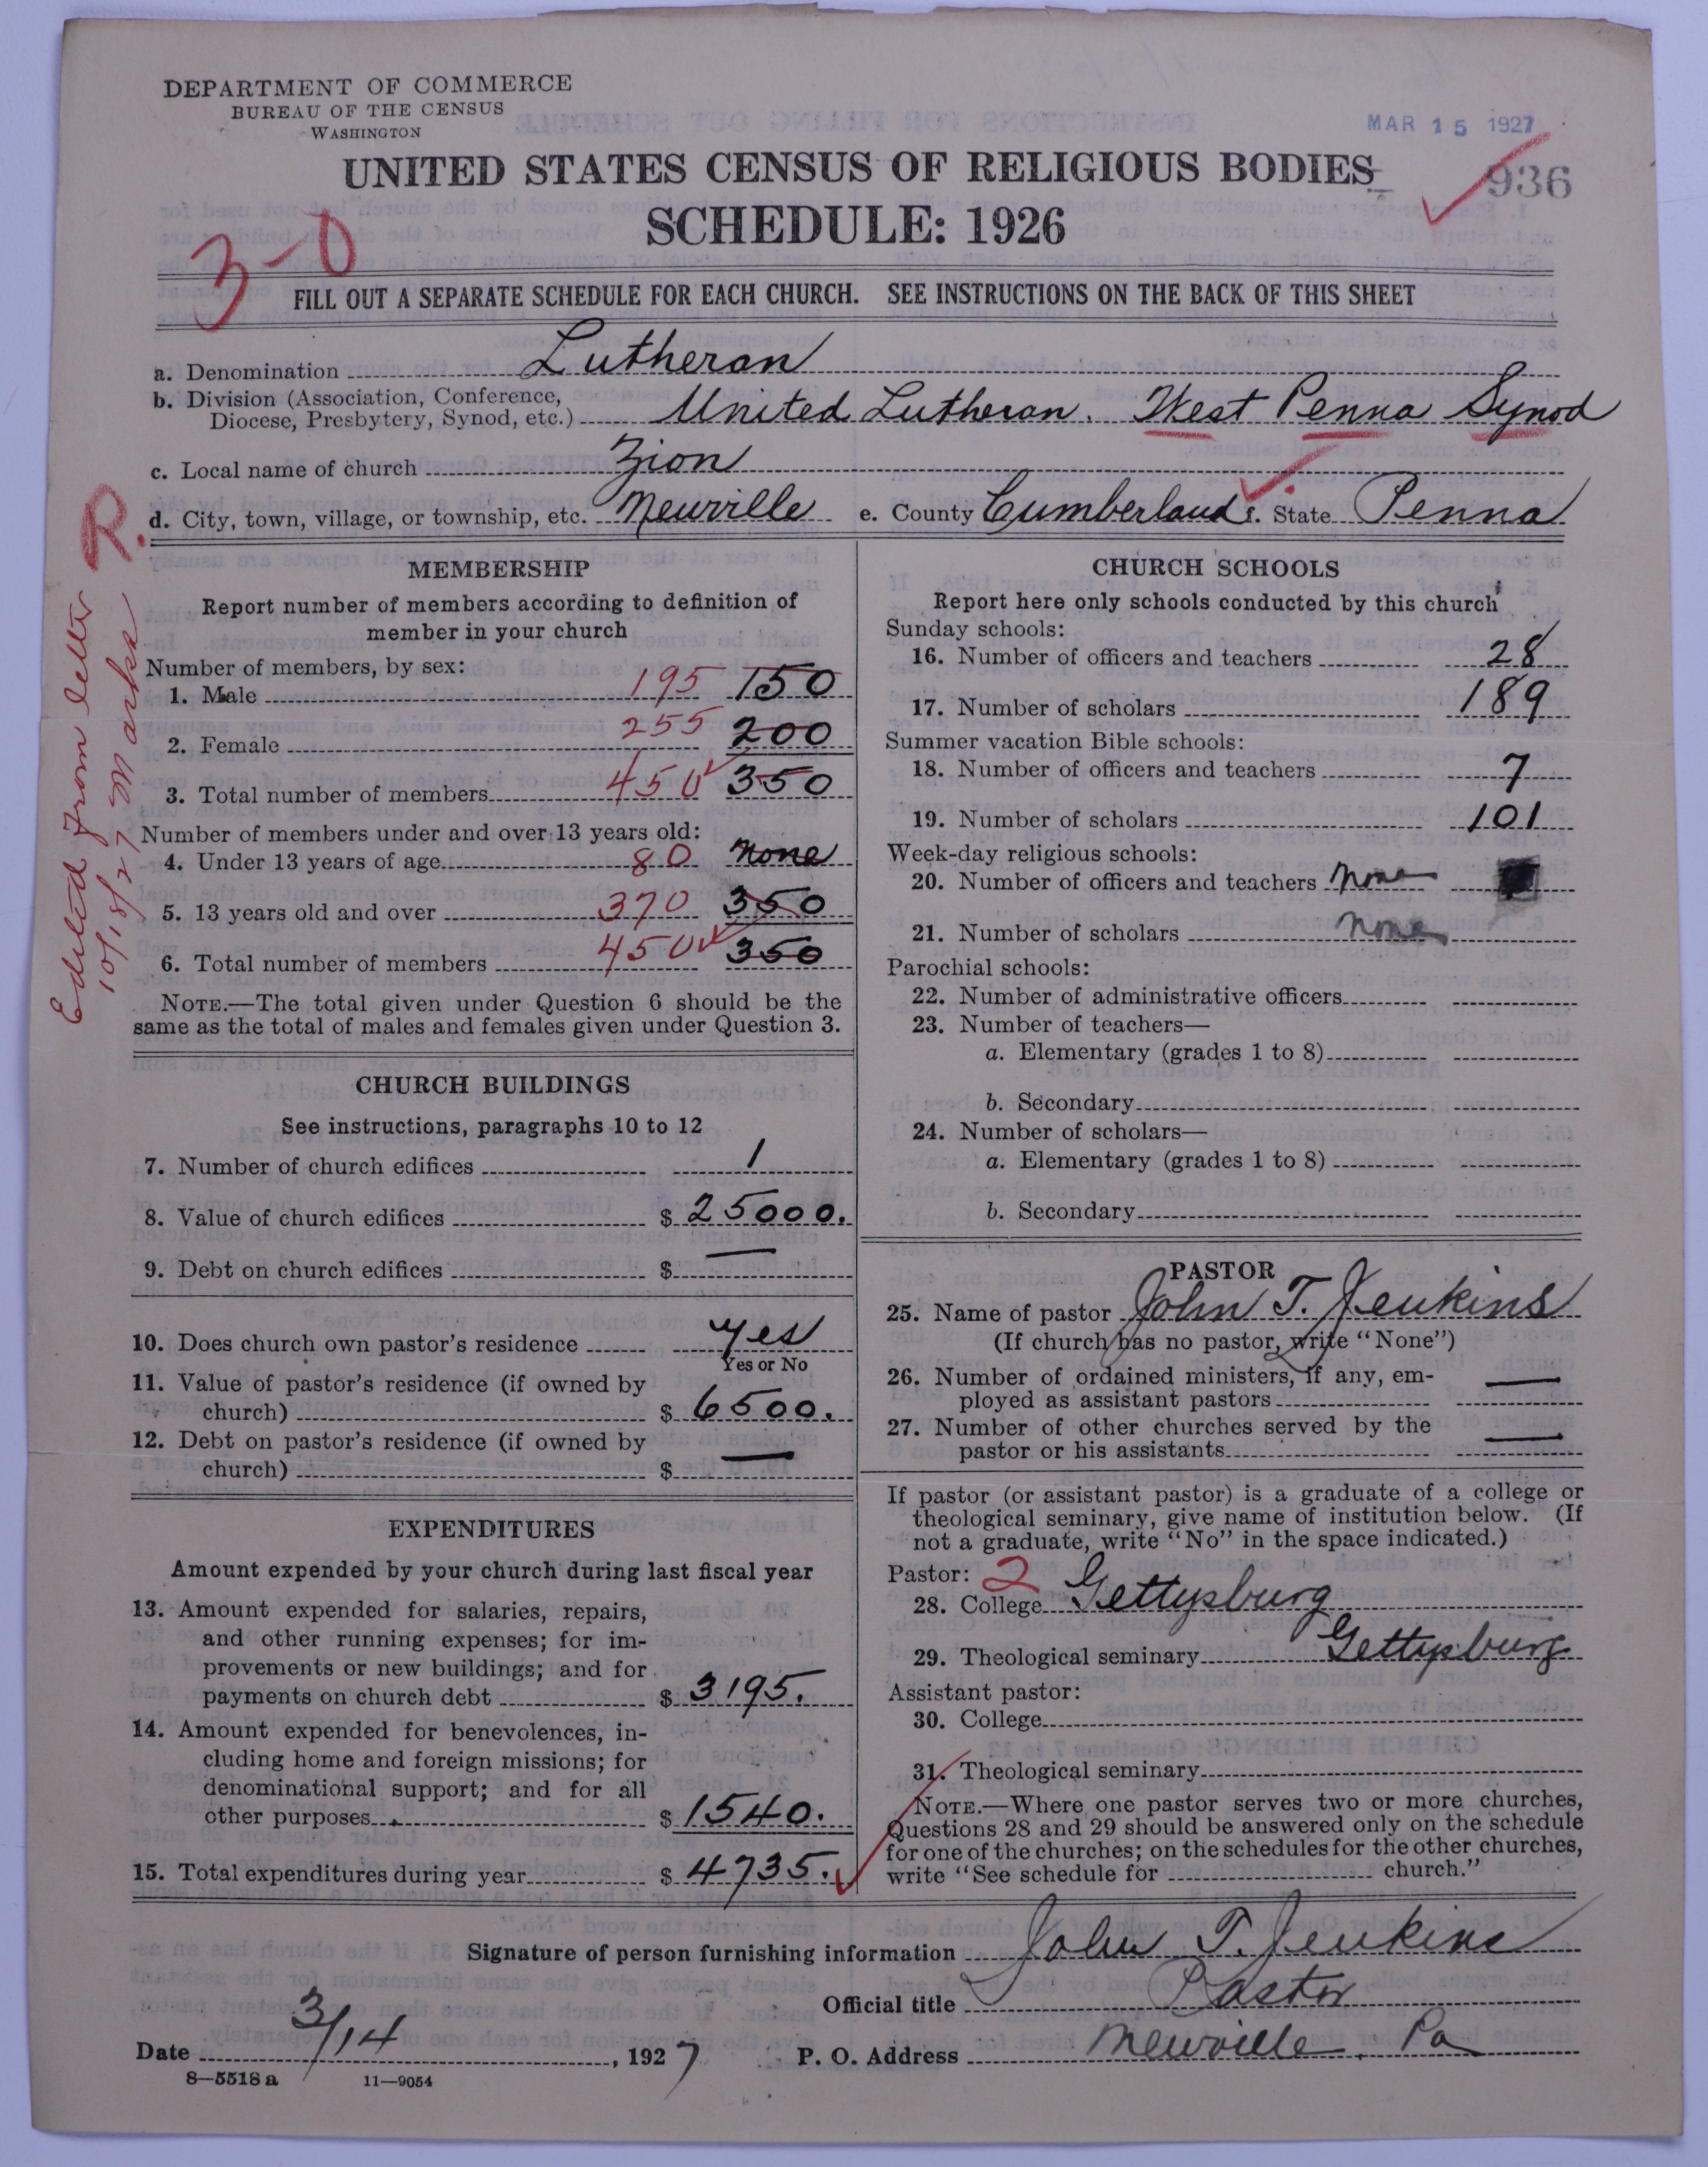 DEPARTMENT OF COMMERCE
BUREAU OF THE CENSUS
WASHINGTON
MAR 15 1927
936
UNITED STATES CENSUS OF RELIGIOUS BODIES
SCHEDULE: 1926
3-0
FILL OUT A SEPARATE SCHEDULE FOR EACH CHURCH. SEE INSTRUCTIONS ON THE BACK OF THIS SHEET
a. Denomination Lutheran
b. Division (Association, Conference, Diocese, Presbytery, Synod, etc.) United Lutheran. West Penna Synod
c. Local name of church Zion
d. City, town, village, or township, etc. Newville e. County Cumberland f. State Penna
R.
Edited from letter
10/18/27 M arks
MEMBERSHIP
Report number of members according to definition of
member in your church
Number of members, by sex:
1. Male 195 150
2. Female 255 200
3. Total number of members 450 350
Number of members under and over 13 years old:
4. Under 13 years of age 80 none
5. 13 years old and over 370 350
6. Total number of members 450 350
NOTE.—The total given under Question 6 should be the
same as the total of males and females given under Question 3.
CHURCH BUILDINGS
See instructions, paragraphs 10 to 12
7. Number of church edifices 1
8. Value of church edifices $ 25000.
9. Debt on church edifices $ —
10. Does church own pastor's residence yes
Yes or No
11. Value of pastor's residence (if owned by
church) $ 6500.
12. Debt on pastor's residence (if owned by
church) $ —
EXPENDITURES
Amount expended by your church during last fiscal year
13. Amount expended for salaries, repairs,
and other running expenses; for im-
provements or new buildings; and for
payments on church debt $ 3195.
14. Amount expended for benevolences, in-
cluding home and foreign missions; for
denominational support; and for all
other purposes $ 1540.
15. Total expenditures during year $ 4735.
CHURCH SCHOOLS
Report here only schools conducted by this church
Sunday schools:
16. Number of officers and teachers 28
17. Number of scholars 189
Summer vacation Bible schools:
18. Number of officers and teachers 7
19. Number of scholars 101
Week-day religious schools:
20. Number of officers and teachers None
21. Number of scholars None
Parochial schools:
22. Number of administrative officers
23. Number of teachers—
a. Elementary (grades 1 to 8)
b. Secondary
24. Number of scholars—
a. Elementary (grades 1 to 8)
b. Secondary
PASTOR
25. Name of pastor John T. Jenkins
(If church has no pastor, write "None")
26. Number of ordained ministers, if any, em-
ployed as assistant pastors —
27. Number of other churches served by the
pastor or his assistants —
If pastor (or assistant pastor) is a graduate of a college or
theological seminary, give name of institution below. (If
not a graduate, write "No" in the space indicated.)
Pastor: 2
28. College Gettysburg
29. Theological seminary Gettysburg
Assistant pastor:
30. College
31. Theological seminary
NOTE.—Where one pastor serves two or more churches,
Questions 28 and 29 should be answered only on the schedule
for one of the churches; on the schedules for the other churches,
write "See schedule for church."
Signature of person furnishing information John T. Jenkins
Official title Pastor
Date 3/14, 1927 P. O. Address Newville. Pa
8—5518 a 11—9054